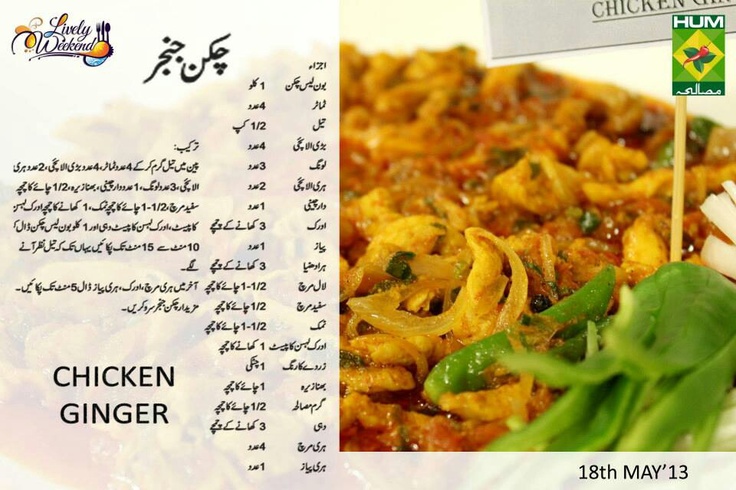 Lively
Weekend
چکن جنجر
CHICKEN GIN
HUM
مصالحہ
اجزاء
بون لیس چکن 1 کلو
ٹماٹر 4 عدد
تیل 1/2 کپ
بڑی الائچی 4 عدد
لونگ 3 عدد
ہری الائچی 2 عدد
دار چینی 1 عدد
ادرک 3 کھانے کے چمچے
پیاز 1 عدد
ہرا دھنیا 3 کھانے کے چمچے
لال مرچ 1-1/2 چائے کا چمچہ
سفید مرچ 1/2 چائے کا چمچہ
نمک 1-1/2 چائے کا چمچہ
ادرک لہسن کا پیسٹ 1 کھانے کا چمچہ
زردے کا رنگ 1 چٹکی
بھنا زیرہ 1 چائے کا چمچہ
گرم مصالحہ 1/2 چائے کا چمچہ
دہی 3 کھانے کے چمچے
ہری مرچ 4 عدد
ہری پیاز 1 عدد
ترکیب:
پین میں تیل گرم کر کے 4 عدد ٹماٹر، 4 عدد بڑی الائچی، 2 عدد ہری
الائچی، 3 عدد لونگ، 1 عدد دار چینی، بھنا زیرہ، 1/2 چائے کا چمچہ
سفید مرچ، 1-1/2 چائے کا چمچہ نمک، 1 کھانے کا چمچہ ادرک لہسن
کا پیسٹ، ادرک لہسن کا پیسٹ دہی اور 1 کلو بون لیس چکن ڈال کر
10 منٹ سے 15 منٹ تک پکائیں یہاں تک کہ تیل نظر آنے
لگے۔
آخر میں ہری مرچ، ادرک، ہری پیاز ڈال 5 منٹ تک پکائیں۔
مزیدار چکن جنجر سرو کریں۔
CHICKEN
GINGER
18th MAY'13